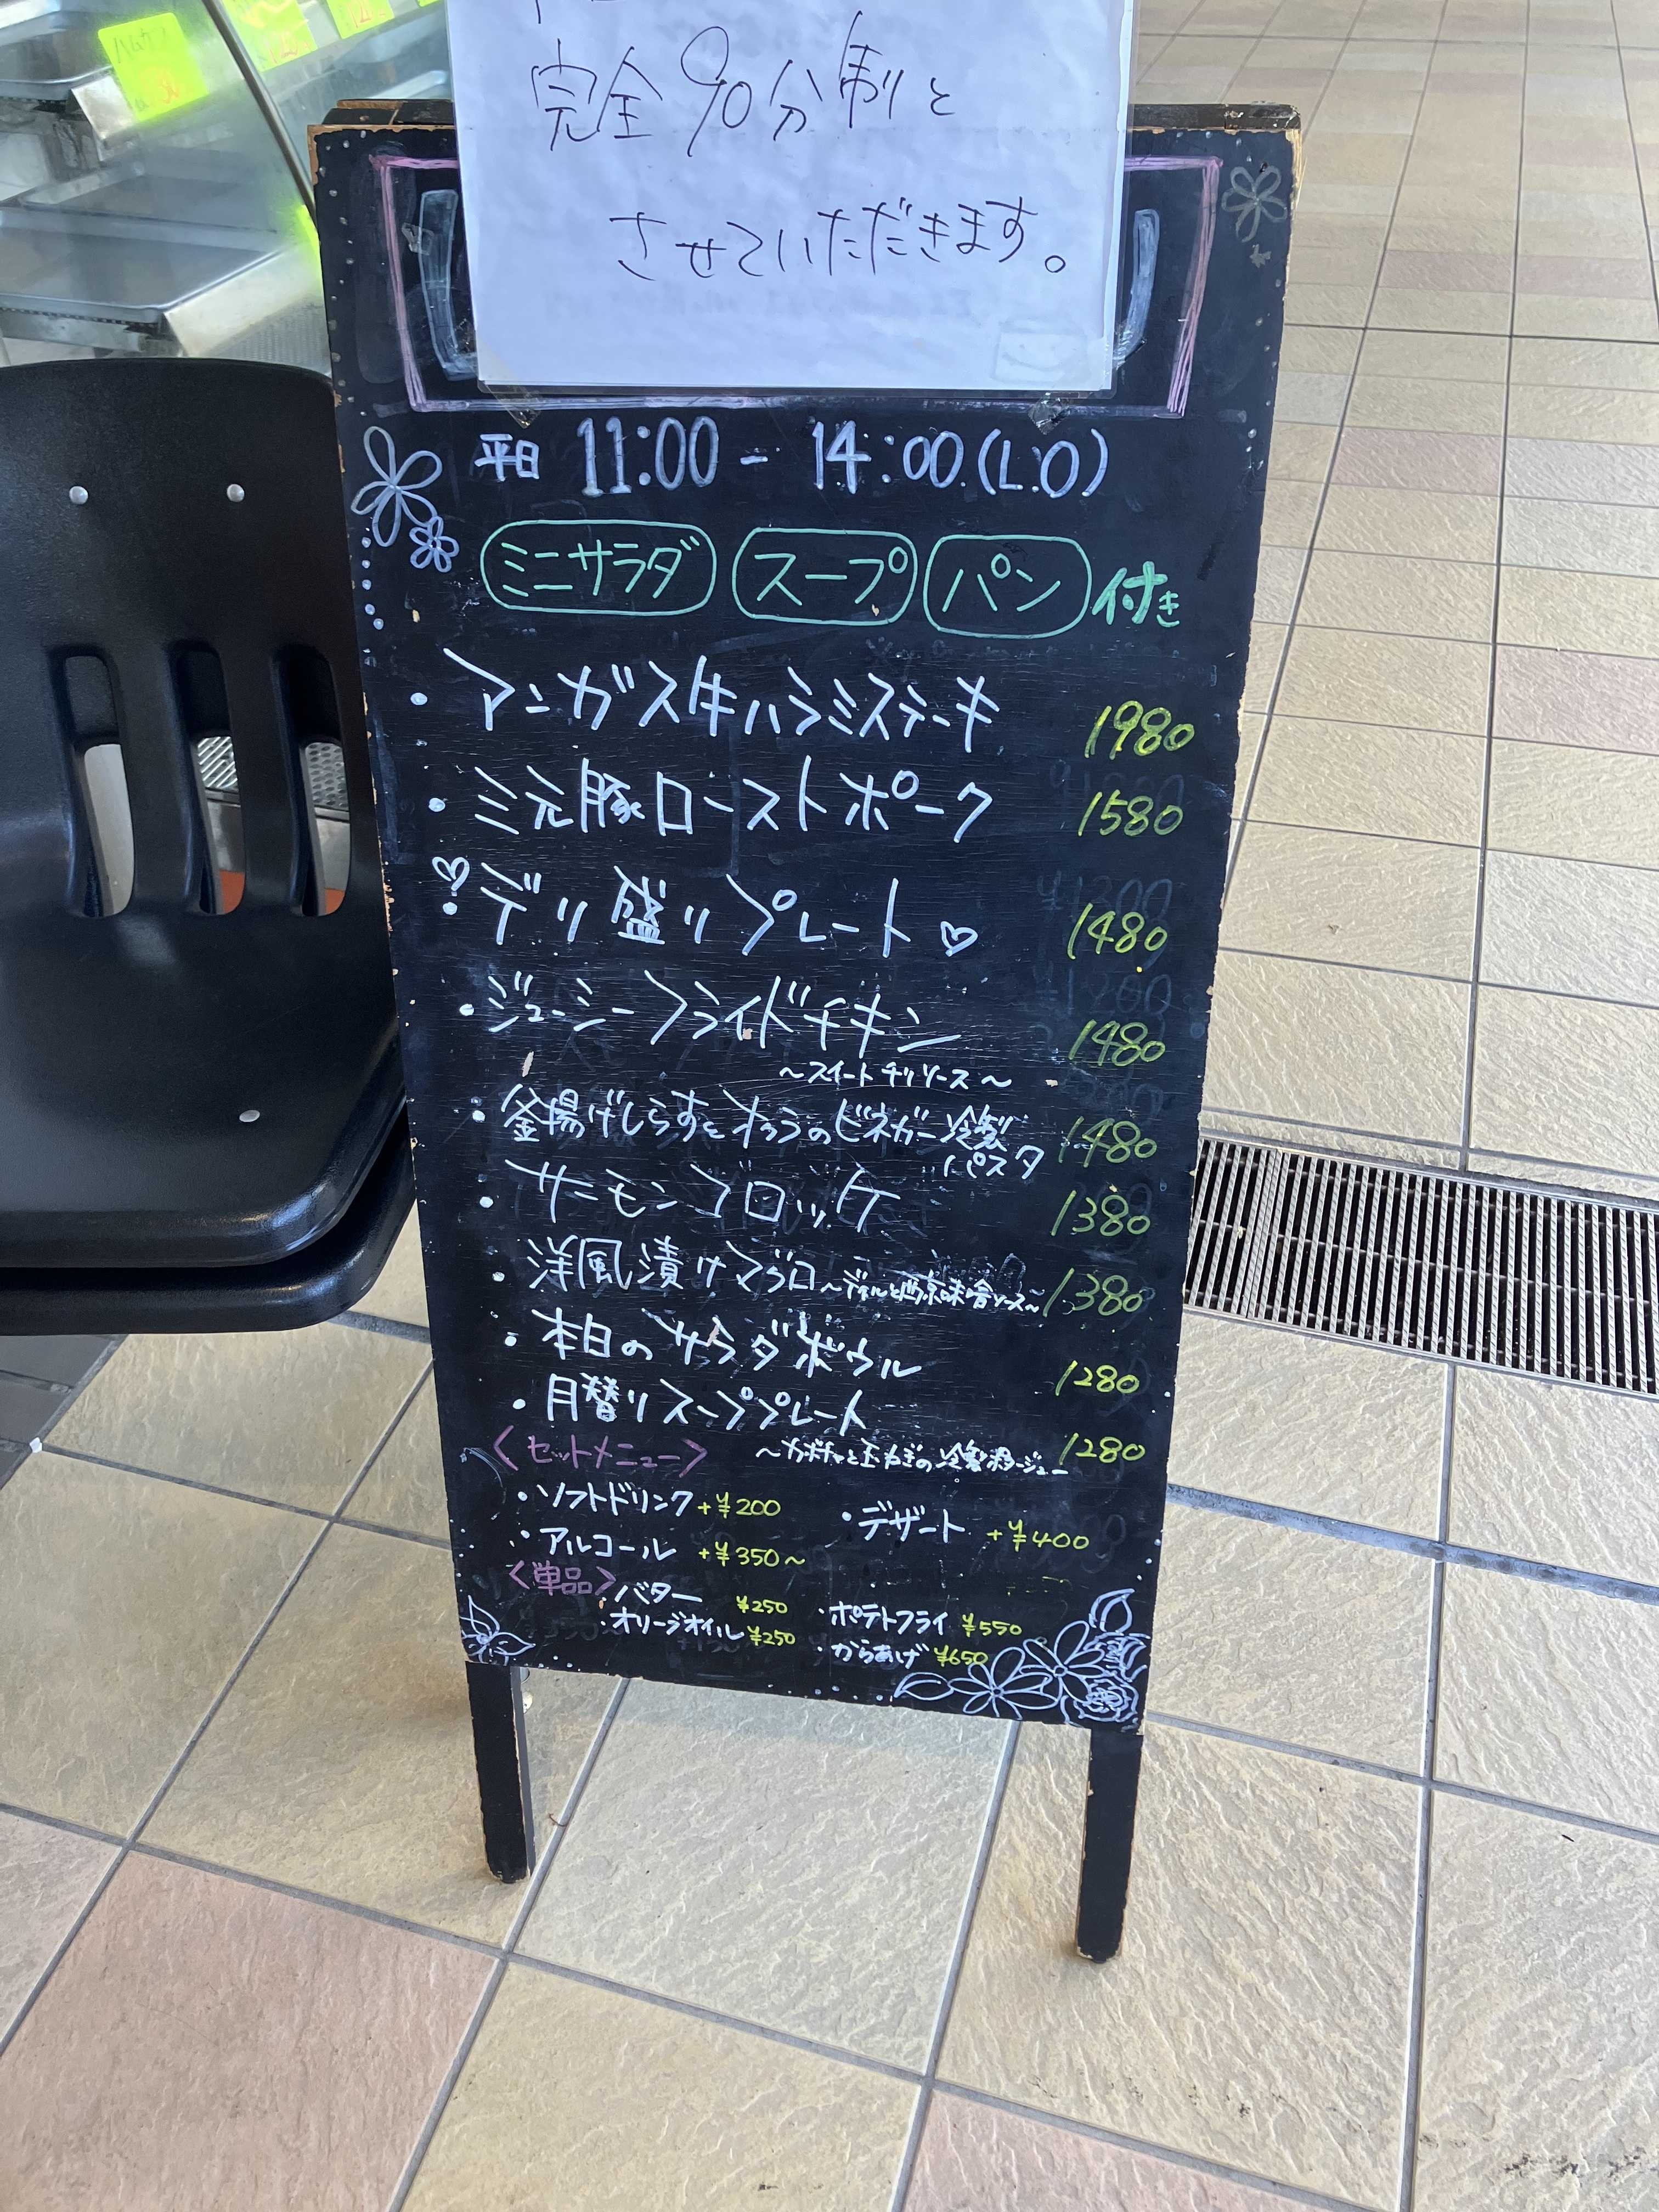 完全90分制と
させていただきます。
平日 11:00 - 14:00(L.O)
ミニサラダ スープ パン 付き
・アンガス牛ハラミステーキ 1980
・三元豚ローストポーク 1580
・デリ盛りプレート♡ 1480
・ジューシーフライドチキン 1480
～スイートチリソース～
・釜揚げしらすときゅうりのビネガー冷製 1480
パスタ
・サーモンブロッケ 1380
・洋風漬けマグロ～ディルと西京味噌ソース～ 1380
・本日のサラダボウル 1280
・月替りスーププレート
～カボチャと玉ねぎの冷製ポタージュ～ 1280
<セットメニュー>
・ソフトドリンク +¥200 ・デザート +¥400
・アルコール +¥350～
<単品>
バター ¥250 ・ポテトフライ ¥550
・オリーブオイル ¥250 ・からあげ ¥650